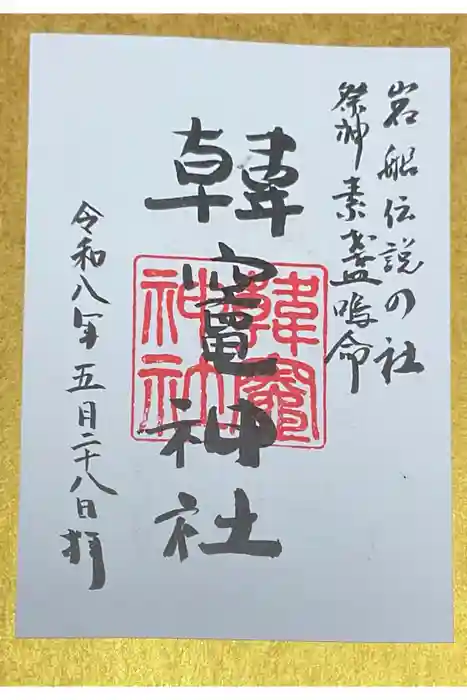 岩船伝説の社
祭神素盞嗚命
韓竈神社
韓竈神社
令和八年五月二十八日拝